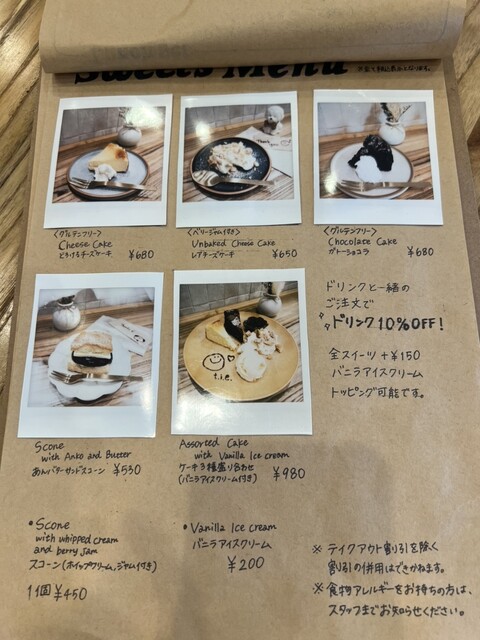 Sweets Menu
〈グルテンフリー〉
Cheese Cake
¥680
〈ベリージャム付き〉
Unbaked Cheese Cake
レアチーズケーキ ¥650
〈グルテンフリー〉
Chocolate Cake
ガトーショコラ ¥680
ドリンクと一緒の
ご注文で
ドリンク10%OFF!
全スイーツ +¥150
バニラアイスクリーム
トッピング可能です。
t.i.e.
Scone
with Anko and Butter
あんバターサンドスコーン ¥530
Assorted Cake
with Vanilla Ice cream
ケーキ3種盛り合わせ
(バニラアイスクリーム付き) ¥980
• Scone
with whipped cream
and berry jam
スコーン(ホイップクリーム,ジャム付き)
1個 ¥450
• Vanilla Ice cream
バニラアイスクリーム
¥200
※ テイクアウト割引を除く
割引の併用はできかねます。
※ 食物アレルギーをお持ちの方は、
スタッフまでお知らせください。